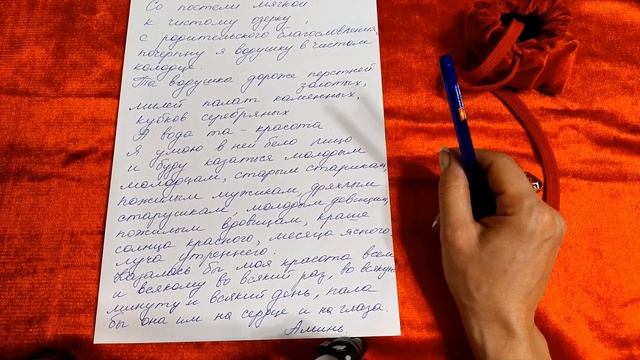 Со постели мягкой
к чистому озерку,
с родительского благословления,
почерпну я водушку в чистом
колодце.
Та водушка дороже перстней
золотых,
милей палат каменных,
кубков серебряных
А вода та - красота
Я умою в ней бело лицо
и буду казатися молодым
молодцам, старым старикам,
пожилым мужикам, дряхлым
старушкам, молодым девицам,
пожилым вдовицам, краше
солнца красного, месяца ясного
луча утреннего.
Оказалось бы моя красота всем
и всякому во всякий раз, во всякую
минуту и всякий день, пала
бы она им на сердце и на глаза.
Аминь.